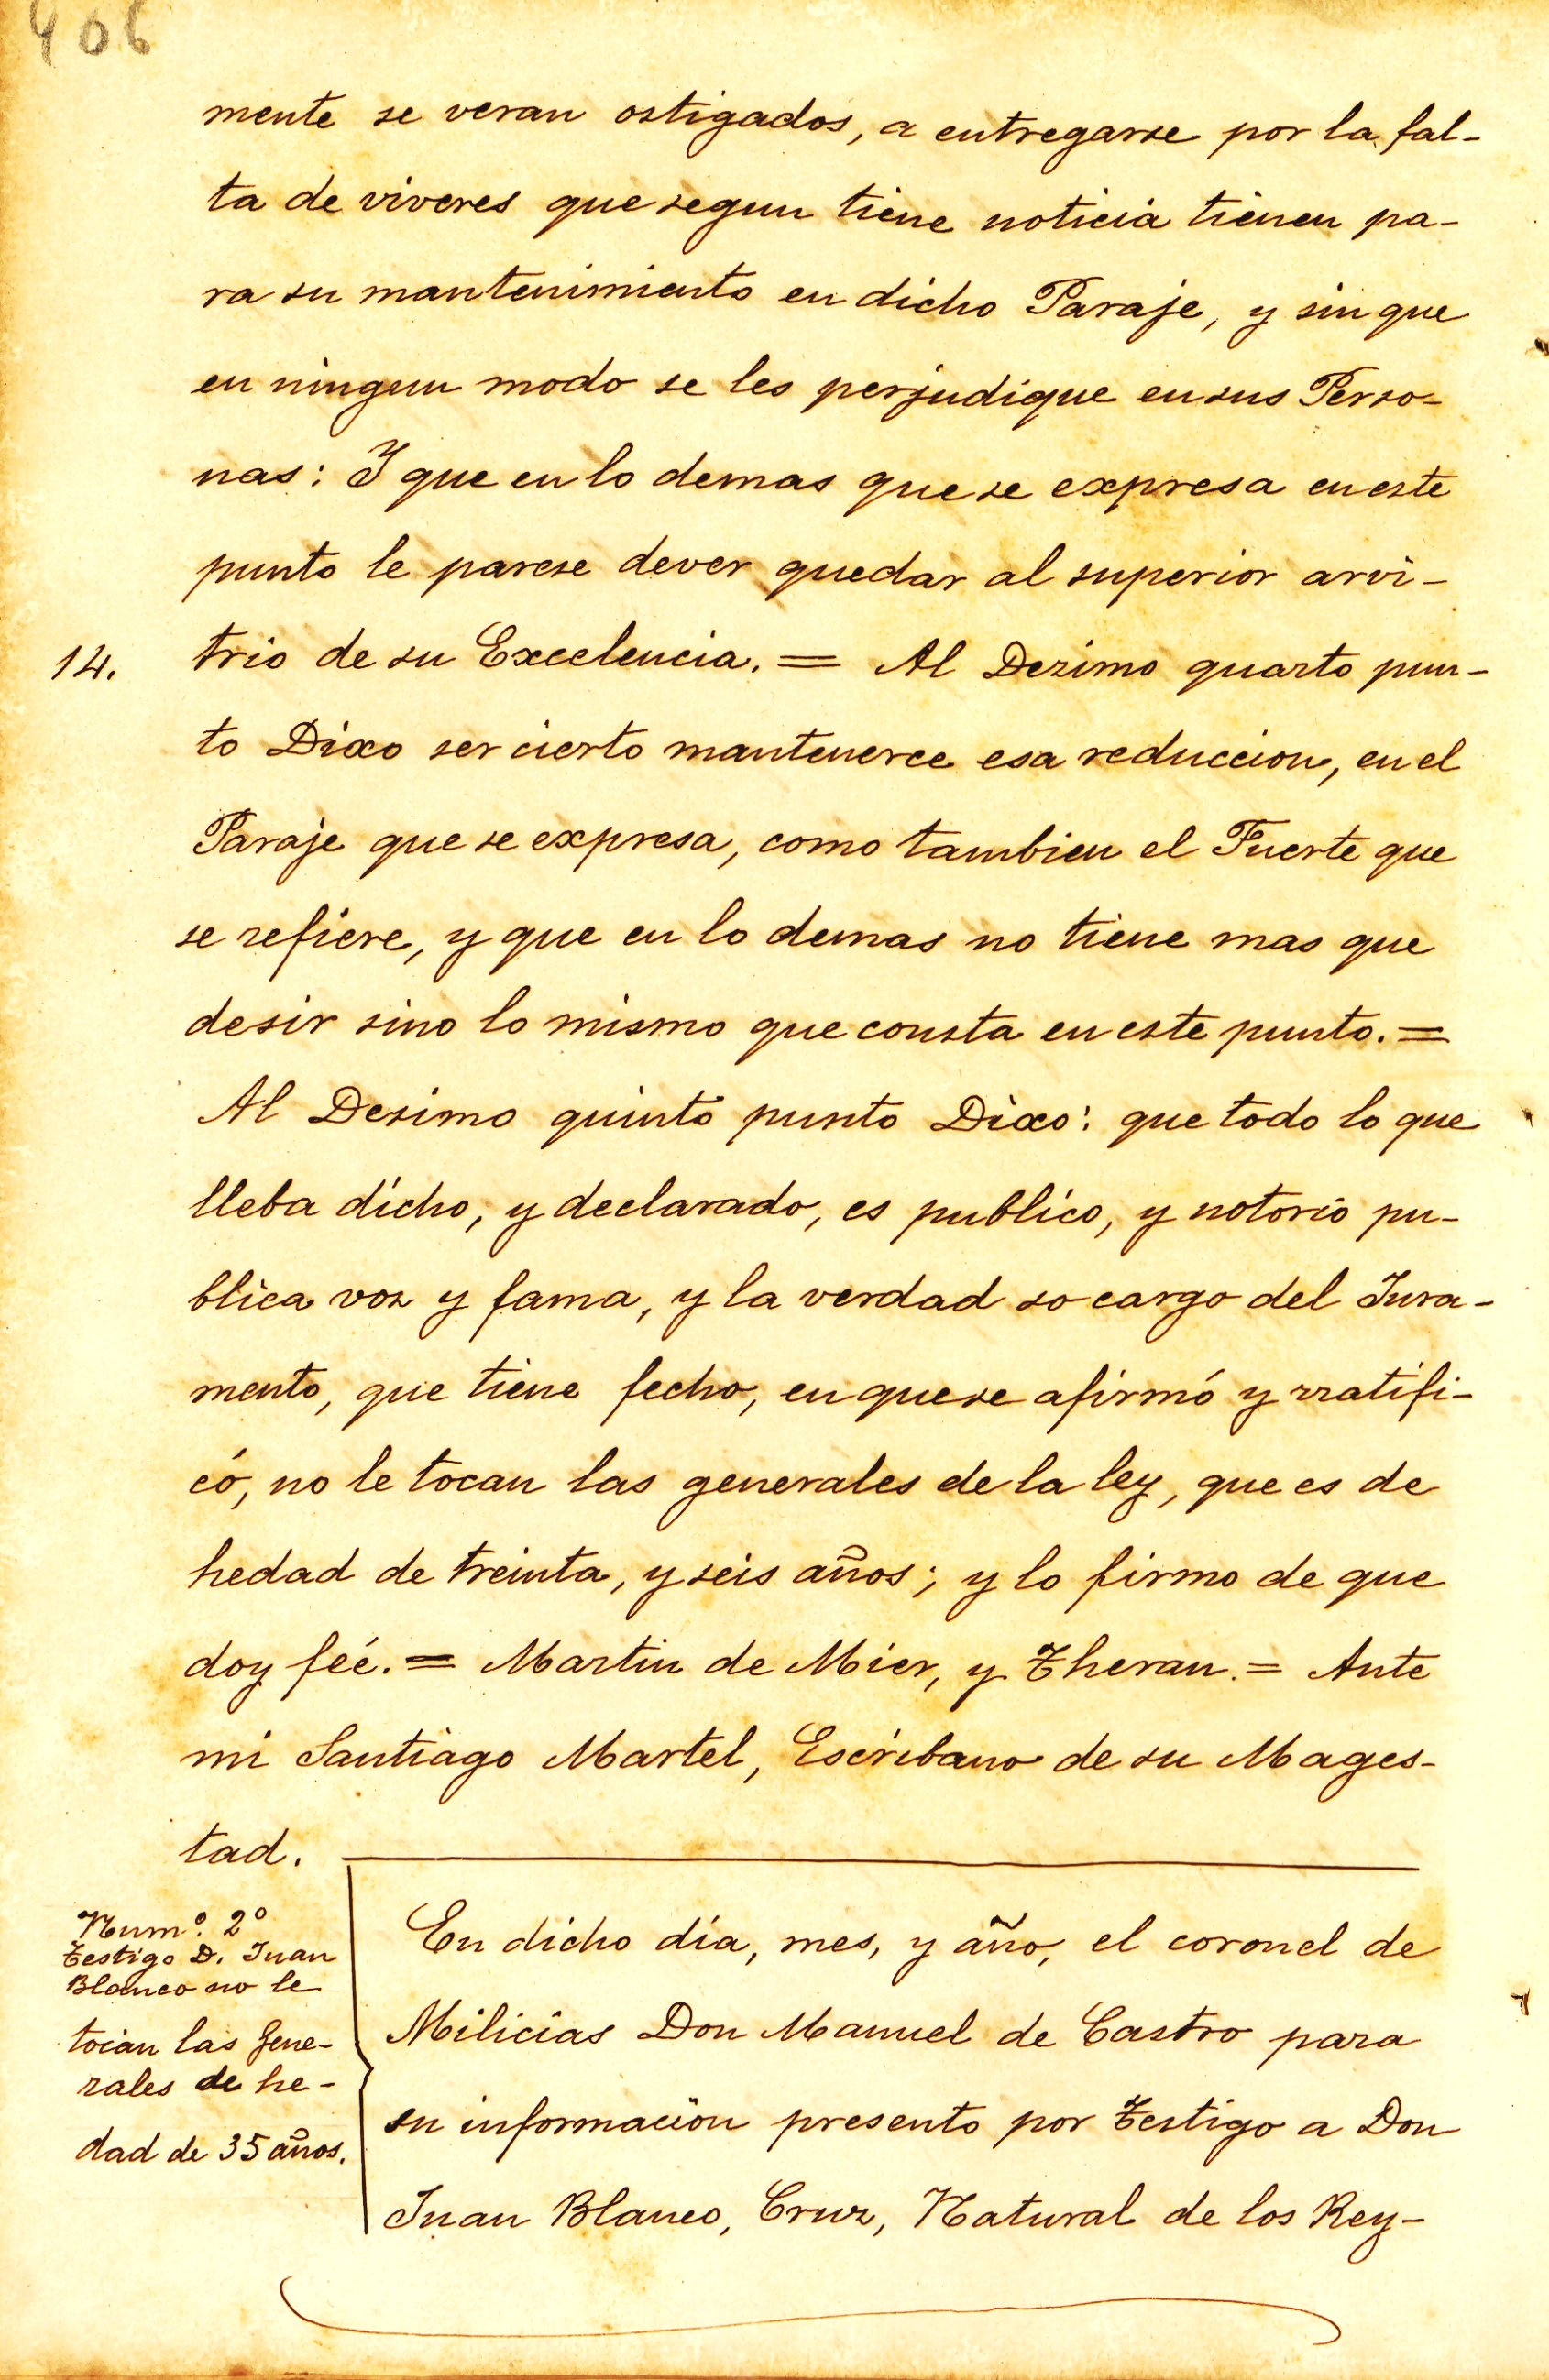 406
mente se veran ostigados, a entregarse por la fal-
ta de viveres que segun tiene noticia tienen pa-
ra su mantenimiento en dicho Paraje, y sin que
en ningun modo se les perjudique en sus Perso-
nas: I que en lo demas que se expresa en este
punto le parese dever quedar al superior arvi-
14. trio de su Excelencia. = Al Dezimo quarto pun-
to Dixo ser cierto mantenerce esa reduccion, en el
Paraje que se expresa, como tambien el Fuerte que
se refiere, y que en lo demas no tiene mas que
desir sino lo mismo que consta en este punto. =
Al Dezimo quinto punto Dixo: que todo lo que
lleba dicho, y declarado, es publico, y notorio pu-
blica voz y fama, y la verdad so cargo del Jura-
mento, que tiene fecho, en que se afirmó y rratifi-
có, no le tocan las generales de la ley, que es de
hedad de treinta, y seis años; y lo firmo de que
doy feé. = Martin de Mier, y Theran. = Ante
mi Santiago Martel, Escribano de su Mages-
tad.
Numº. 2º
Testigo D. Juan
Blanco no le
tocan las gene-
rales de he-
dad de 35 años.
En dicho dia, mes, y año, el coronel de
Milicias Don Manuel de Castro para
su informacion presento por Testigo a Don
Juan Blanco, Cruz, Natural de los Rey-